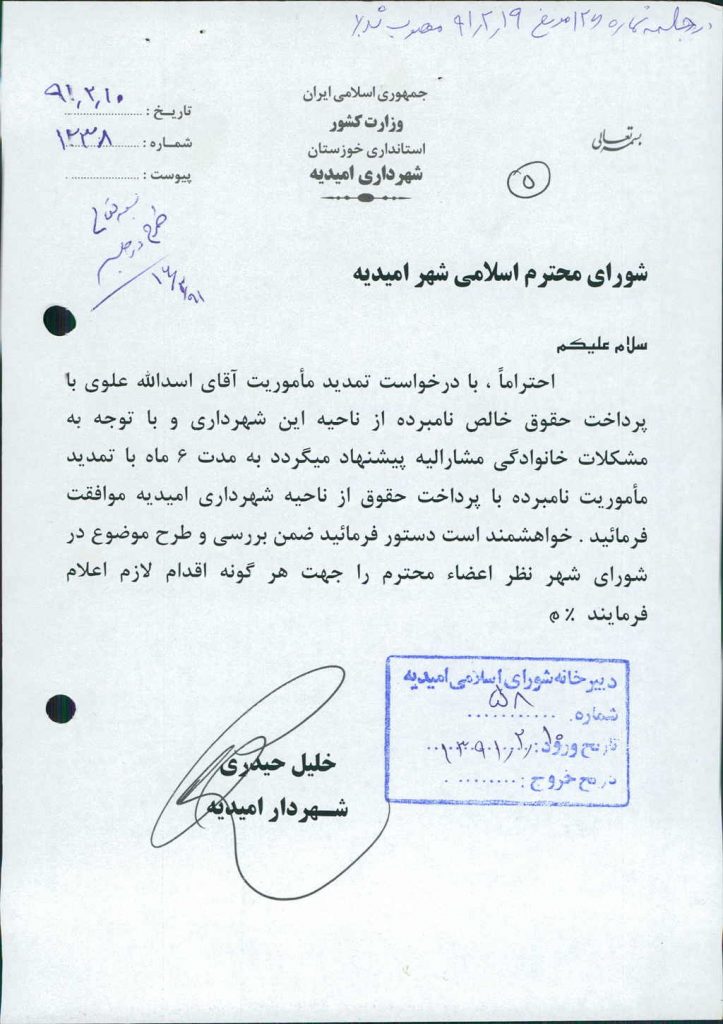 در جلسه شماره ۱۲۶ مورخ ۹۱٫۲٫۱۹ مصوب شد٪
بسمه تعالی
جمهوری اسلامی ایران
وزارت کشور
استانداری خوزستان
شهرداری امیدیه
تاریخ : ۹۱٫۲٫۱۰
شماره : ۱۲۳۸
پیوست :
۵
بسمه تعالی
طرح در جلسه
شورای محترم اسلامی شهر امیدیه
سلام علیکم
احتراماً ، با درخواست تمدید مأموریت آقای اسدالله علوی با
پرداخت حقوق خالص نامبرده از ناحیه این شهرداری و با توجه به
مشکلات خانوادگی مشارالیه پیشنهاد میگردد به مدت ۶ ماه با تمدید
مأموریت نامبرده با پرداخت حقوق از ناحیه شهرداری امیدیه موافقت
فرمائید . خواهشمند است دستور فرمائید ضمن بررسی و طرح موضوع در
شورای شهر نظر اعضاء محترم را جهت هر گونه اقدام لازم اعلام
فرمایند ٪م
دبیرخانه شورای اسلامی امیدیه
شماره. ۵۸
تاریخ ورود:
تاریخ خروج :
خلیل حیدری
شهردار امیدیه